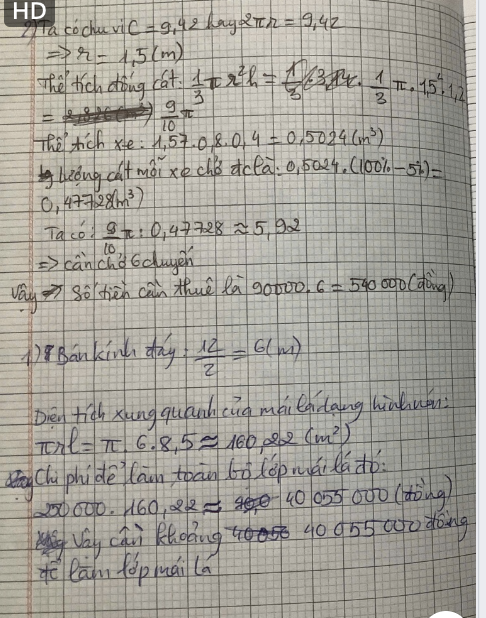 HD
2) Ta có chu vi C = 9,42 hay 2πr = 9,42
=> r = 1,5 (m)
Thể tích đống cát: 1/3 πr²h = 1/3 π. 1,5². 1,2
= 9/10 π
Thể tích xe: 1,57.0,8.0,4 = 0,5024 (m³)
Lượng cát mỗi xe chở đc là: 0,5024.(100% - 5%) =
0,47728 (m³)
Ta có: 9/10 π : 0,47728 ≈ 5,92
=> cần chở 6 chuyến
Vậy => Số tiền cần thuê là 90000.6 = 540 000 (đồng)
1) Bán kính đáy: 12/2 = 6 (m)
Diện tích xung quanh của mái lá dạng hình nón:
πrl = π. 6. 8,5 ≈ 160,22 (m²)
Chi phí để làm toàn bộ lớp mái lá đó:
250000. 160,22 ≈ 40 055 000 (đồng)
Vậy cần khoảng 40 055 000 đồng
để làm lớp mái lá